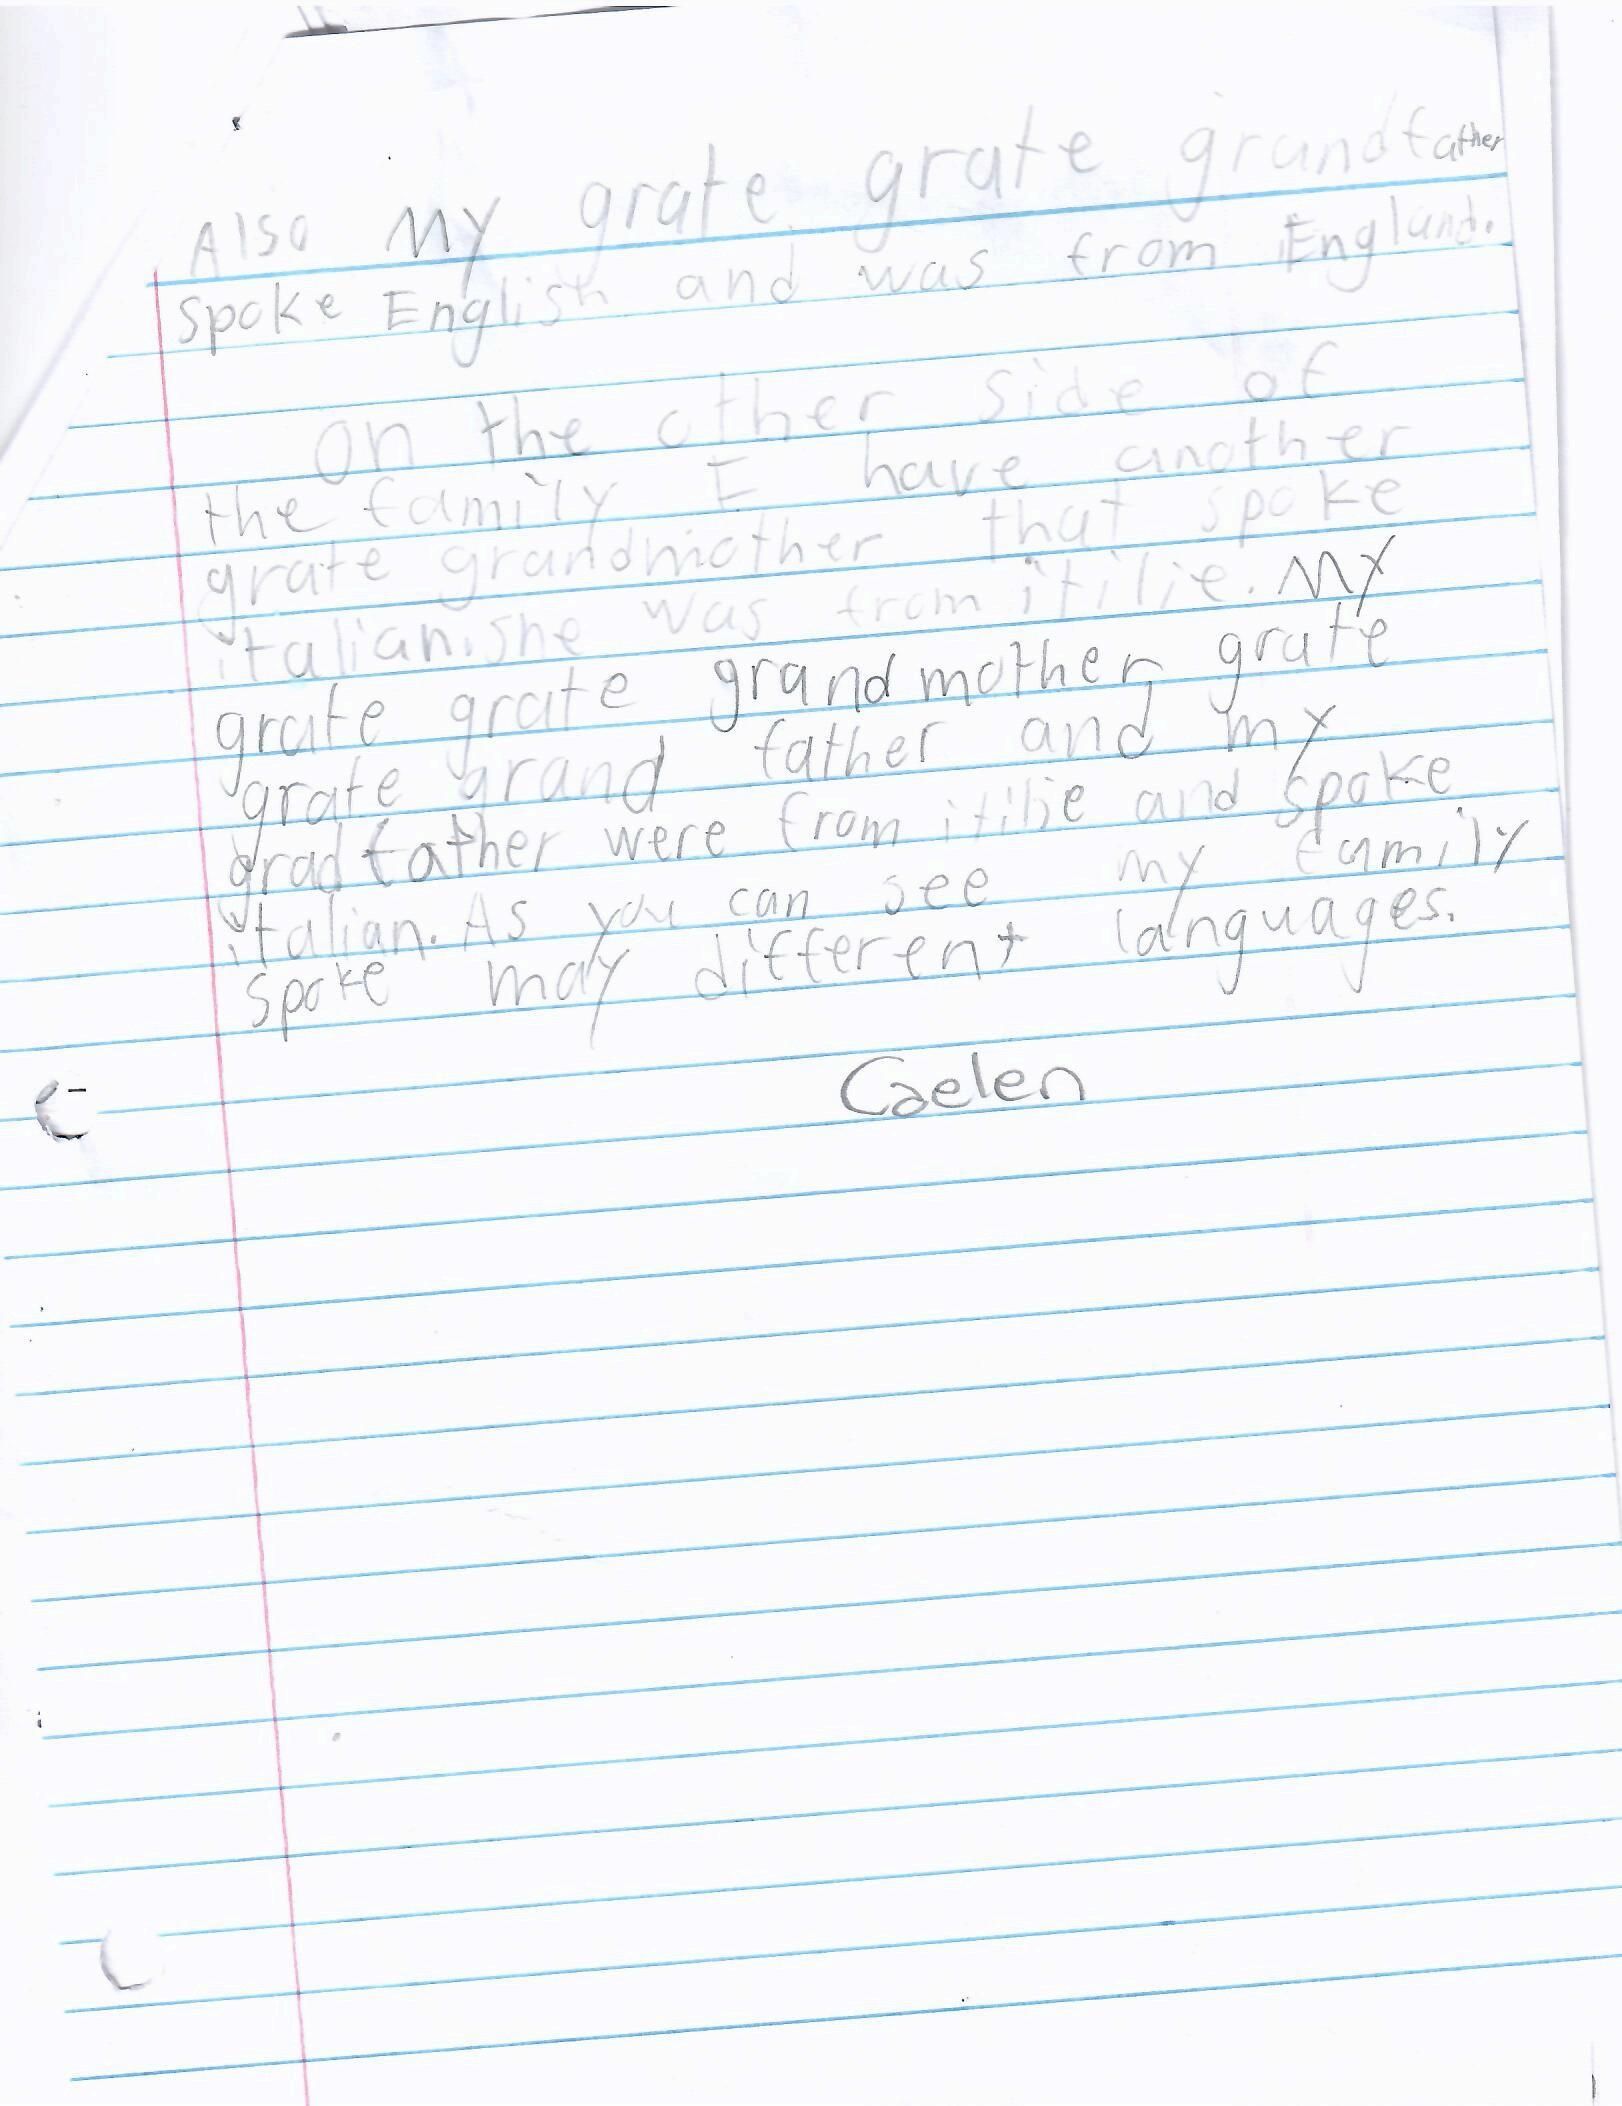 Also My grate grate grandfather
spoke English and was from England.
On the other side of
the family I have another
grate grandmother that spoke
italian. she was from itilie. My
grate grate grandmother, grate
grate grand father and my
gradfather were from itilie and spoke
italian. As you can see my family
spoke may different languages.
Caelen